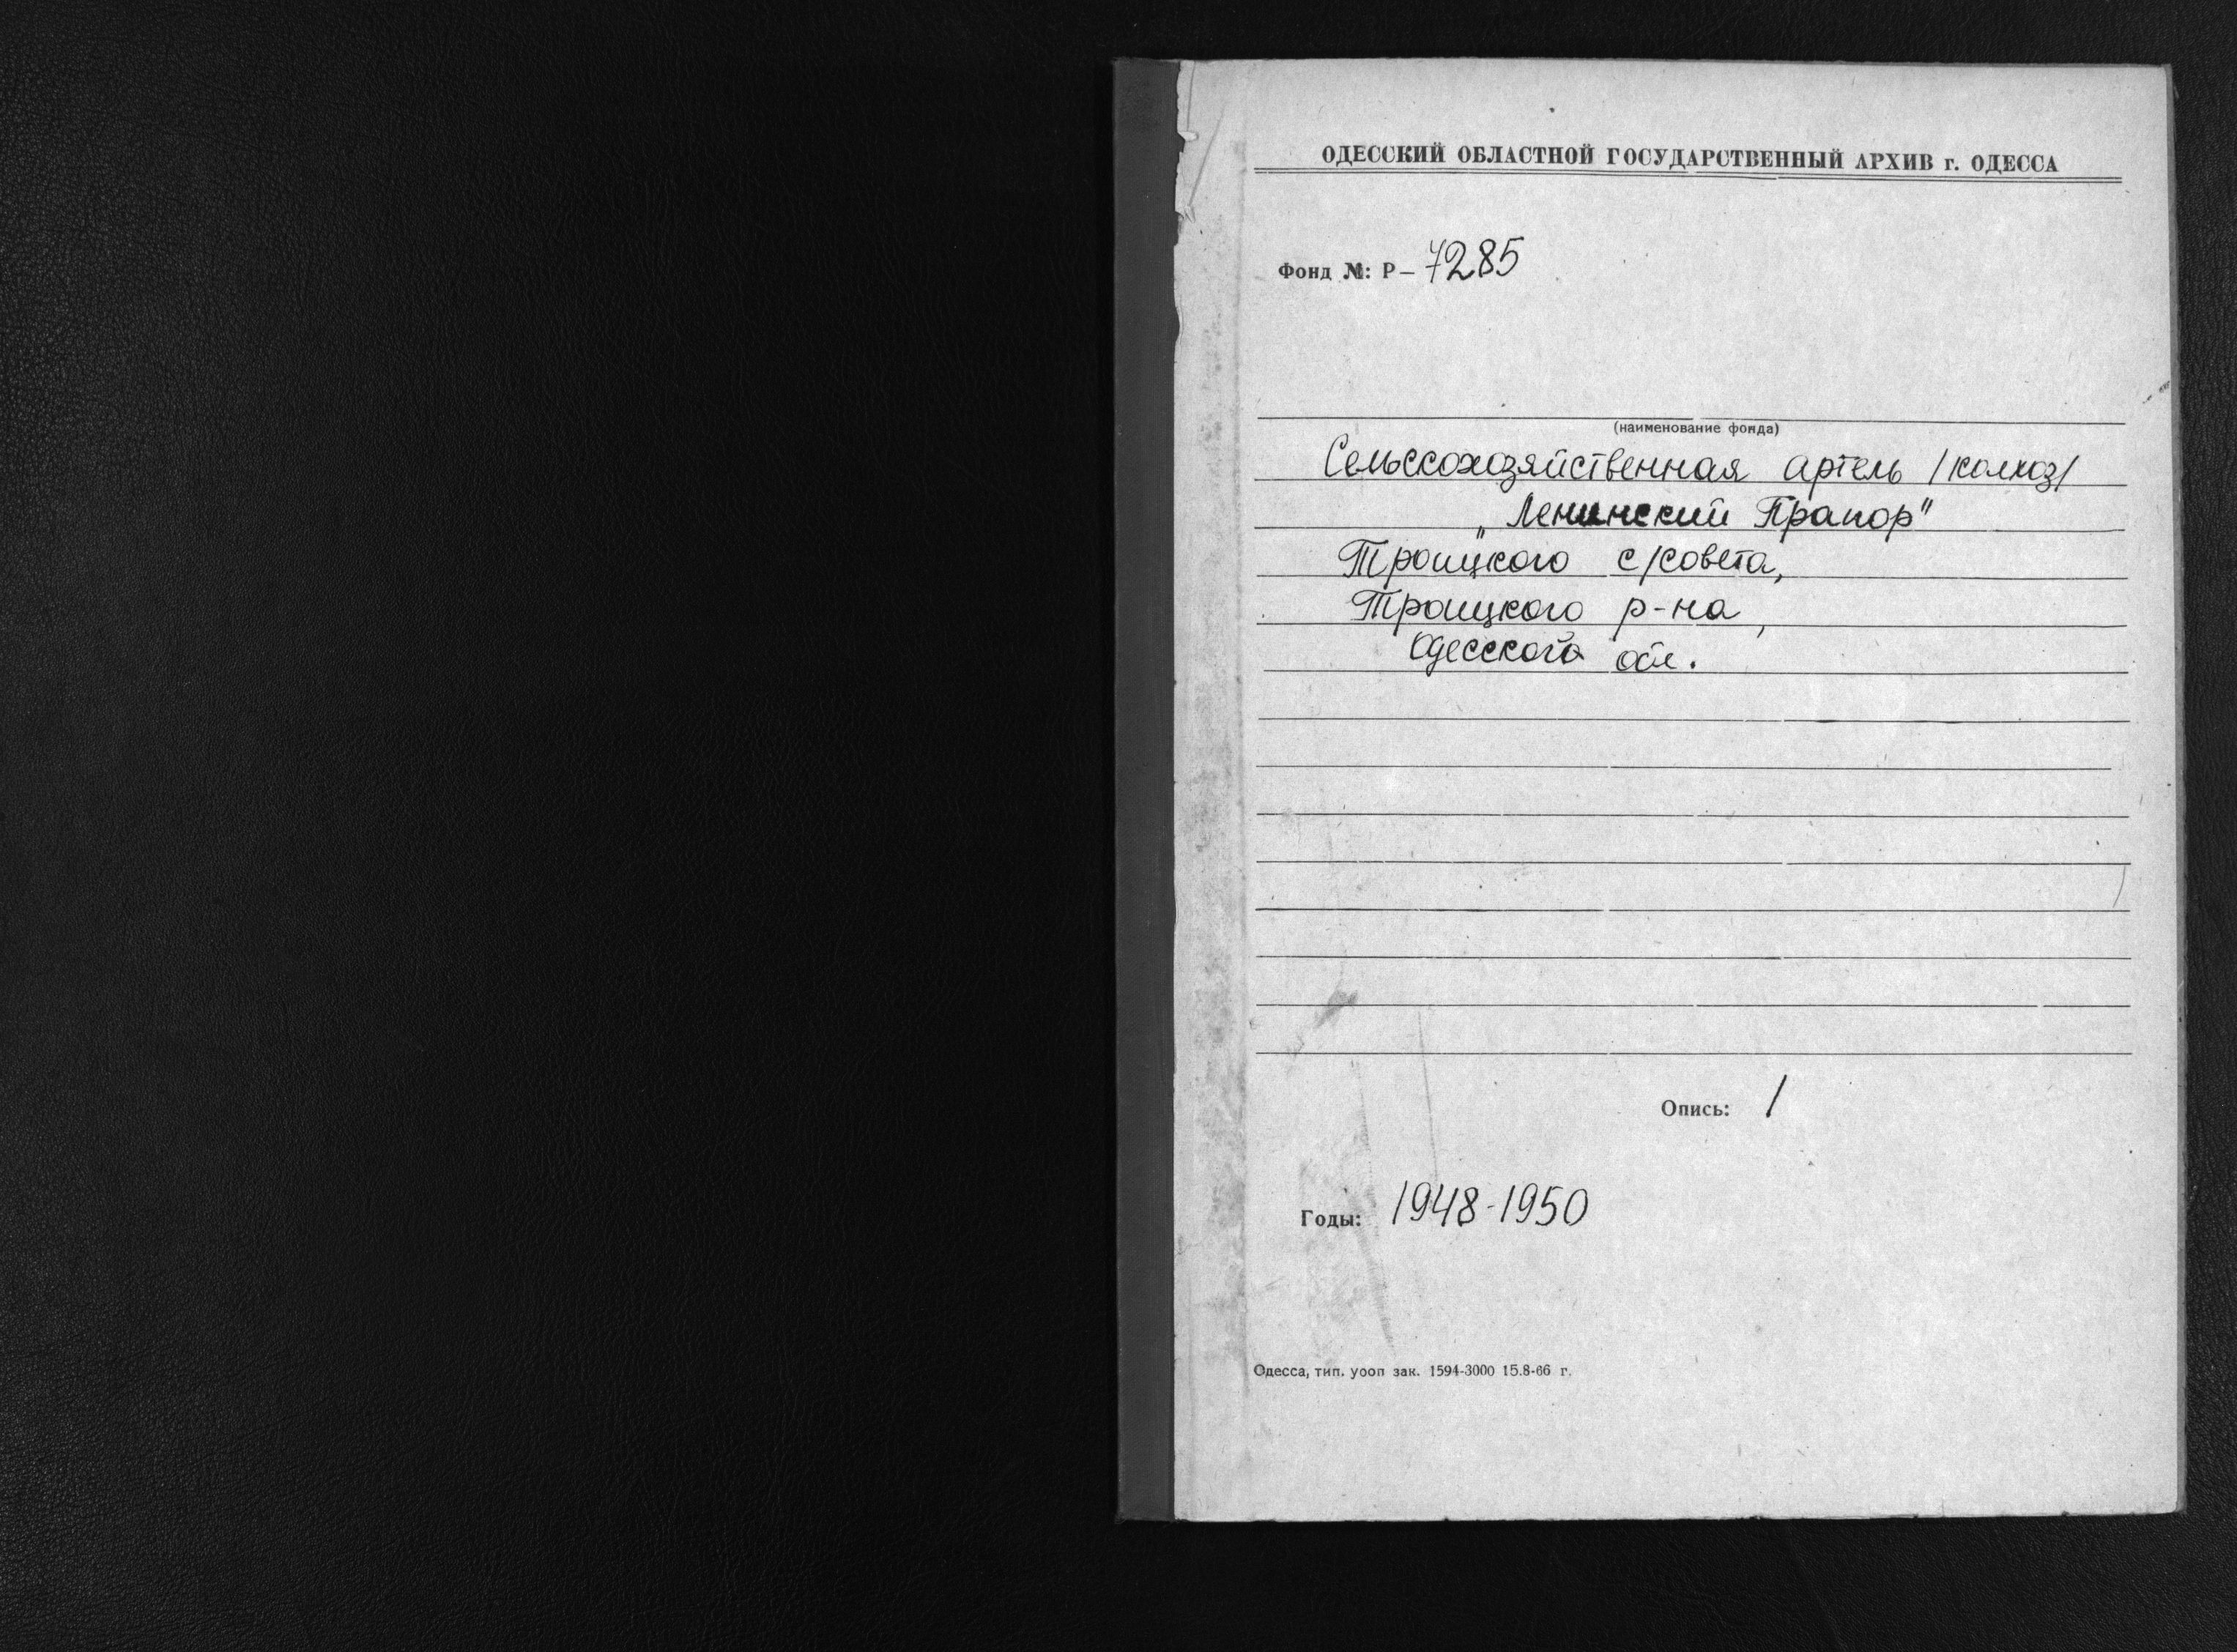 ОДЕССКИЙ ОБЛАСТНОЙ ГОСУДАРСТВЕННЫЙ АРХИВ г. ОДЕССА
Фонд №: Р— 7285
(наименование фонда)
Сельскохозяйственная артель /колхоз/
„Ленинский Прапор"
Троицкого с/совета,
Троицкого р-на,
Одесской обл.
Опись: 1
Годы: 1948-1950
Одесса, тип. уооп зак. 1594-3000 15.8-66 г.